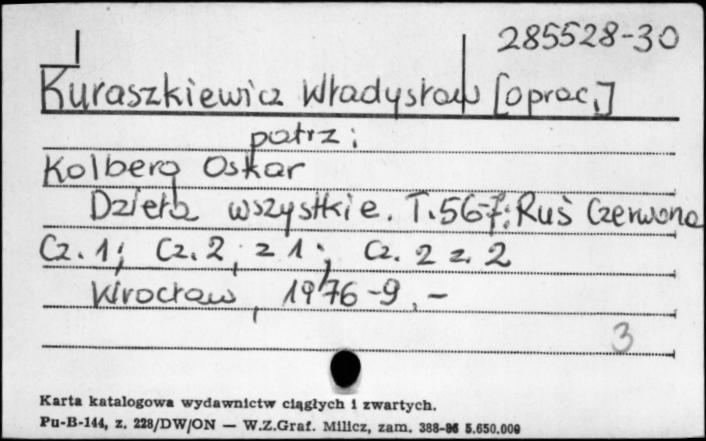 285528-30
Kuraszkiewicz Władysław [oprac.]
patrz:
Kolberg Oskar
Dzieła wszystkie. T.56-7: Ruś Czerwona
Cz. 1; Cz. 2, z 1; Cz. 2 z. 2
Wrocław, 1976-9. -
3
Karta katalogowa wydawnictw ciągłych i zwartych.
Pu-B-144, z. 228/DW/ON — W.Z.Graf. Milicz, zam. 388-86 5.650.000